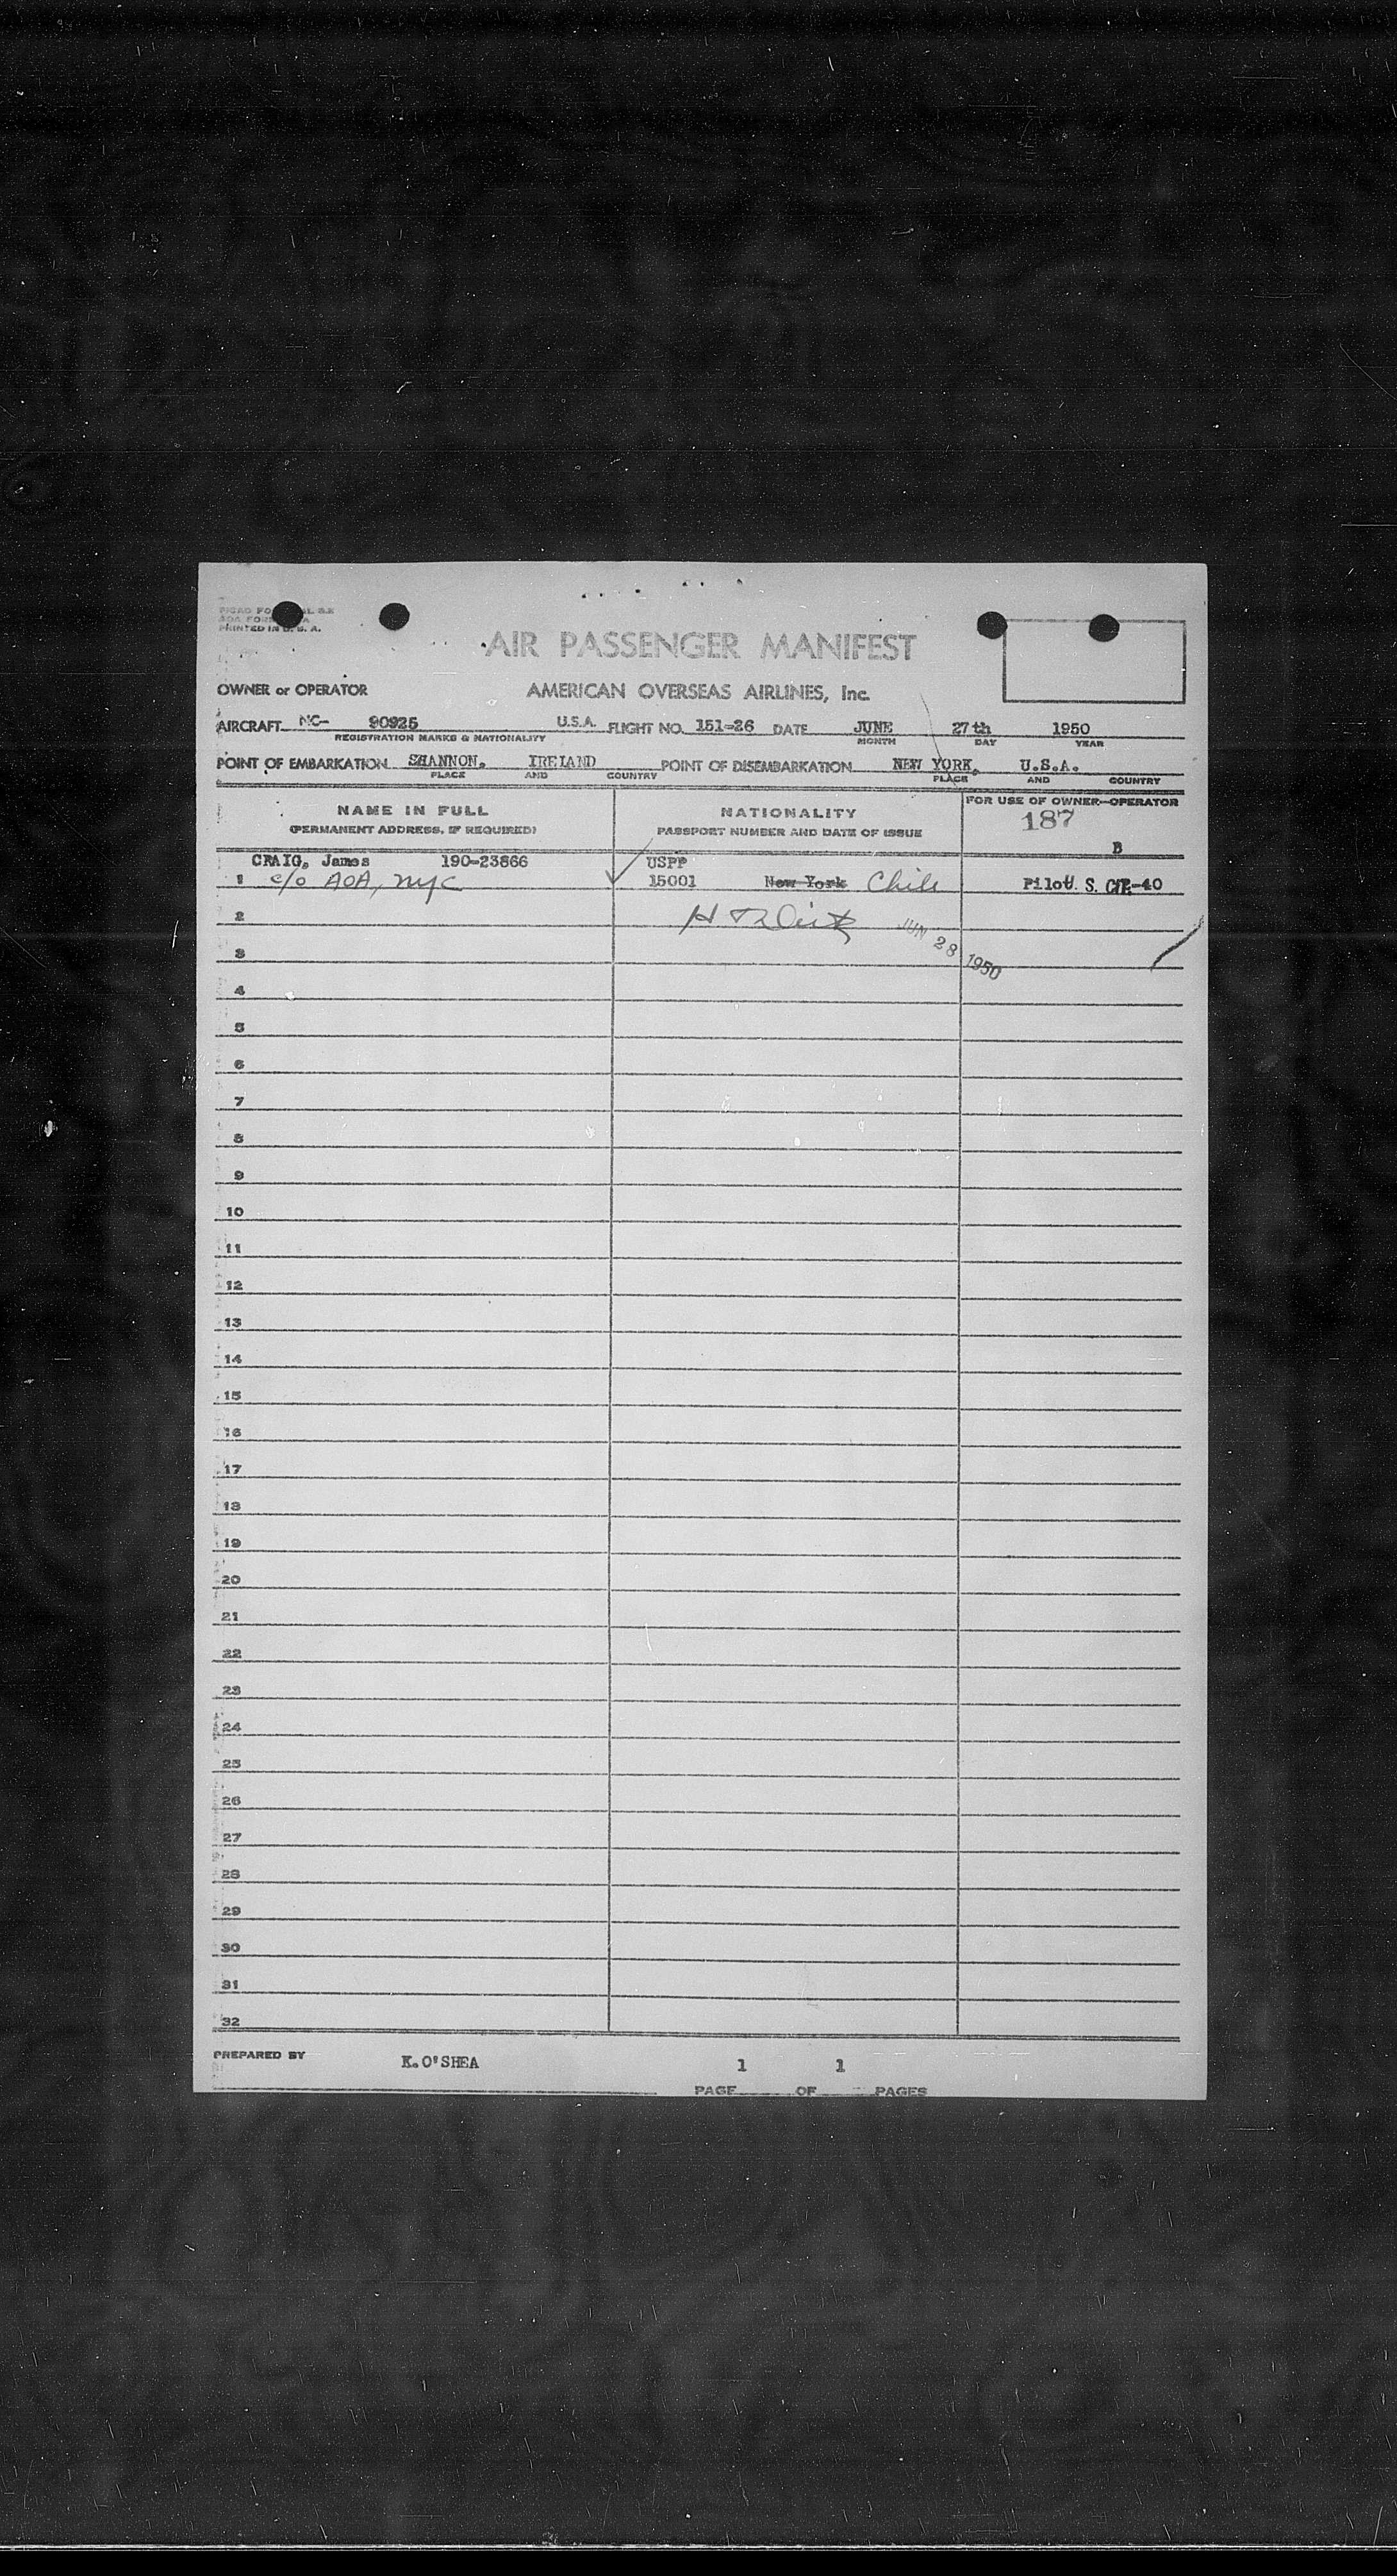 PRINTED IN U. S. A.
AIR PASSENGER MANIFEST
OWNER or OPERATOR AMERICAN OVERSEAS AIRLINES, Inc.
AIRCRAFT NC- 90925 U.S.A. FLIGHT NO. 151-26 DATE JUNE 27th 1950
REGISTRATION MARKS & NATIONALITY MONTH DAY YEAR
POINT OF EMBARKATION SHANNON, IRELAND POINT OF DISEMBARKATION NEW YORK, U.S.A.
PLACE AND COUNTRY PLACE AND COUNTRY
NAME IN FULL NATIONALITY FOR USE OF OWNER-OPERATOR
(PERMANENT ADDRESS, IF REQUIRED) PASSPORT NUMBER AND DATE OF ISSUE 187
B
CRAIG, James 190-23866 USPP
1 c/o AOA, NYC 15001 New York Chile Pilot U. S. CIT-40
2 JUN 28 1950
3
4
5
6
7
8
9
10
11
12
13
14
15
16
17
18
19
20
21
22
23
24
25
26
27
28
29
30
31
32
PREPARED BY K. O'SHEA 1 1
PAGE OF PAGES